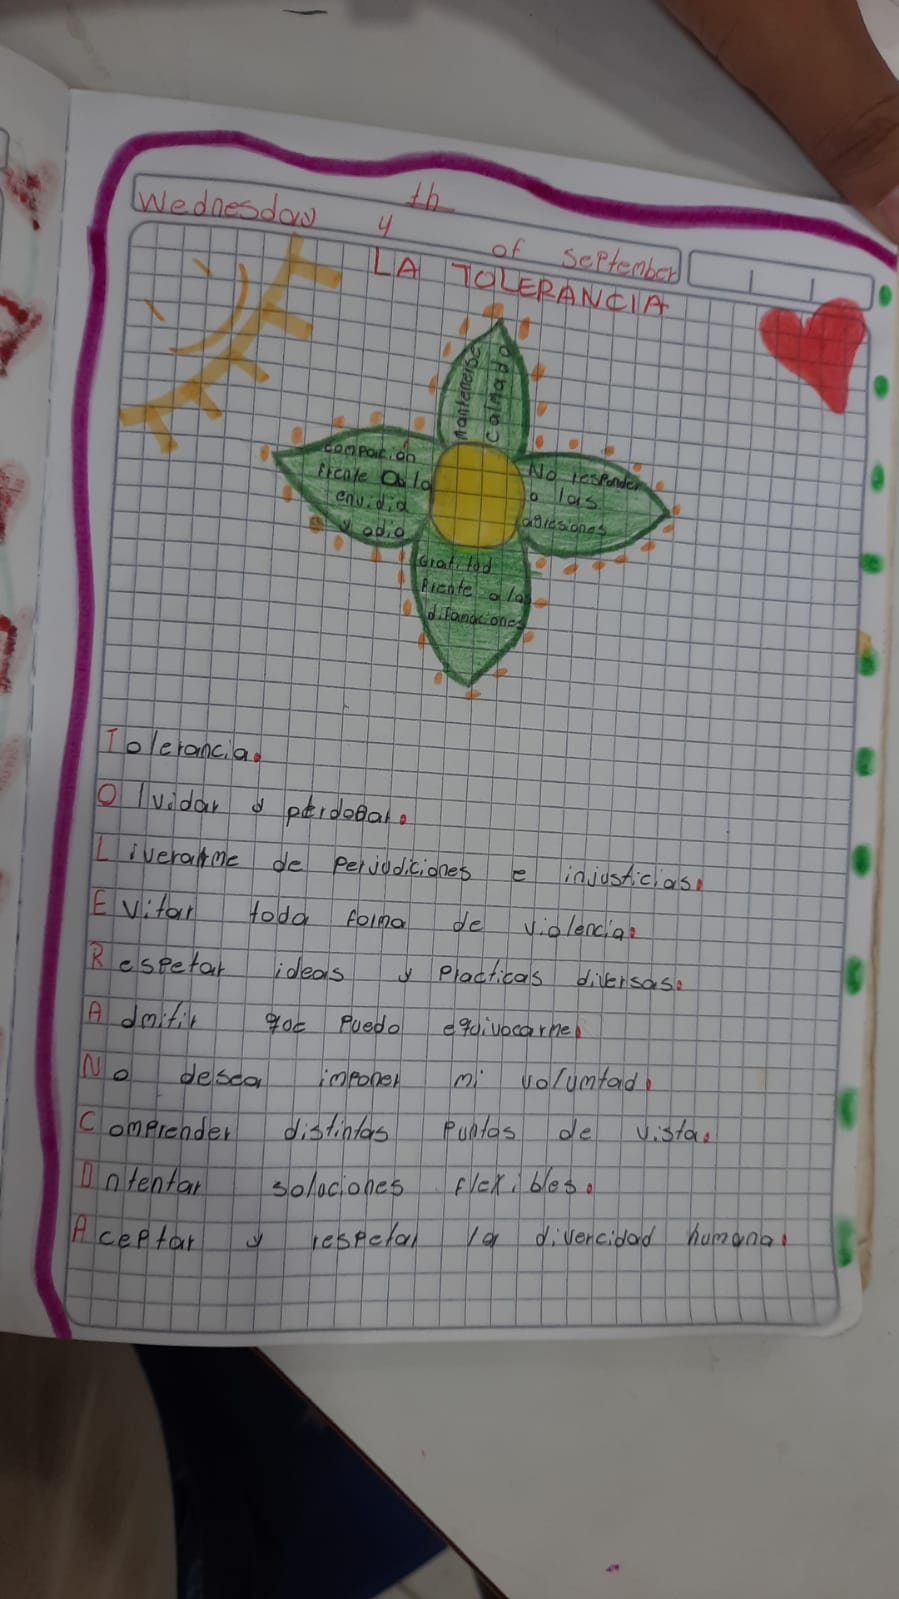 Wednesday 4th of September
LA TOLERANCIA
Mantenerse
calmado
compación
frente a la
envidia
y odio
No responder
a las
agresiones
Gratitud
frente a las
difamaciones
Tolerancia.
Olvidar y perdonar.
Liverarme de perjudiciones e injusticias.
Evitar toda forma de violencia.
Respetar ideas y practicas diversas.
Admitir que puedo equivocarme.
No desear imponer mi voluntad.
Comprender distintos puntos de vista.
Intentar soluciones flexibles.
Aceptar y respetar la divercidad humana.